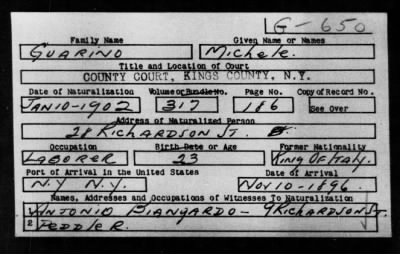 G-650
Family Name Given Name or Names
GUARINO Michele.
Title and Location of Court
COUNTY COURT, KINGS COUNTY, N.Y.
Date of Naturalization Volume or Bundle No. Page No. Copy of Record No.
JAN 10-1902 317 186 See Over
Address of Naturalized Person
28 RICHARDSON ST.
Occupation Birth Date or Age Former Nationality
LABORER 23 KING OF ITALY.
Port of Arrival in the United States Date of Arrival
N.Y N.Y. NOV 10-1896
Names, Addresses and Occupations of Witnesses To Naturalization
1 ANTONIO BIANGARDO - 9 RICHARDSON ST.
2 PEDDLER.